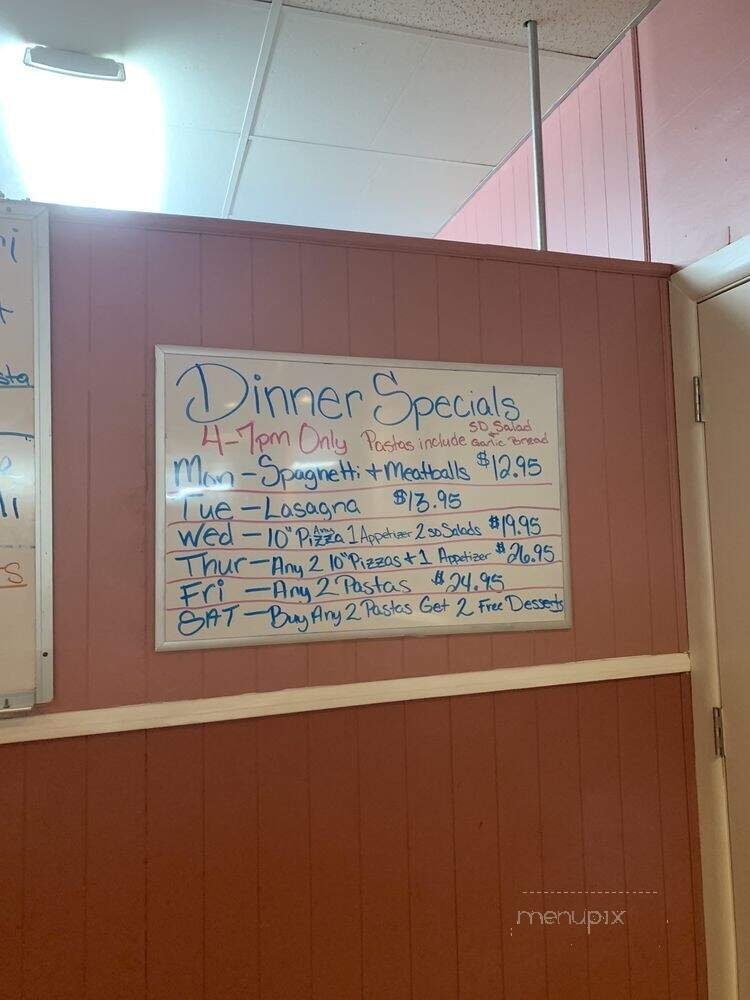 Dinner Specials
4-7pm Only Pastas include SD Salad + Garlic Bread
Mon - Spaghetti + Meatballs $12.95
Tue - Lasagna $13.95
Wed - 10" Any Pizza 1 Appetizer 2 SD Salads $19.95
Thur - Any 2 10" Pizzas + 1 Appetizer $26.95
Fri - Any 2 Pastas $24.95
SAT - Buy Any 2 Pastas Get 2 Free Desserts
menupix